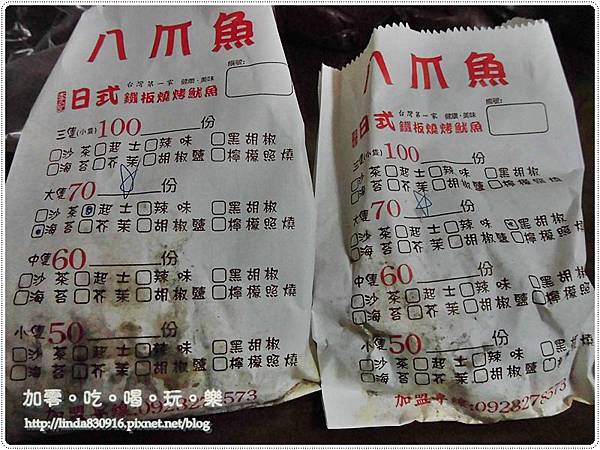 八爪魚
編號:
台灣第一家 健康、美味
日式鐵板燒烤魷魚
三隻(小隻)100______份
□沙茶□起士□辣味 □黑胡椒
□海苔□芥茉□胡椒鹽□檸檬照燒
大隻70______份
□沙茶□起士□辣味 □黑胡椒
□海苔□芥茉□胡椒鹽□檸檬照燒
中隻60______份
□沙茶□起士□辣味 □黑胡椒
□海苔□芥茉□胡椒鹽□檸檬照燒
小隻50______份
□沙茶□起士□辣味 □黑胡椒
□海苔□芥茉□胡椒鹽□檸檬照燒
加盟專線:0928278573
八爪魚
編號:
台灣第一家 健康、美味
日式鐵板燒烤魷魚
三隻(小隻)100______份
□沙茶□起士□辣味 □黑胡椒
□海苔□芥茉□胡椒鹽□檸檬照燒
大隻70______份
□沙茶□起士□辣味 □黑胡椒
□海苔□芥茉□胡椒鹽□檸檬照燒
中隻60______份
□沙茶□起士□辣味 □黑胡椒
□海苔□芥茉□胡椒鹽□檸檬照燒
小隻50______份
□沙茶□起士□辣味 □黑
□海苔□芥茉□胡椒鹽□檸
加盟專線:0928278573
加零。吃。喝。玩。樂
http://linda830916.pixnet.net/blog